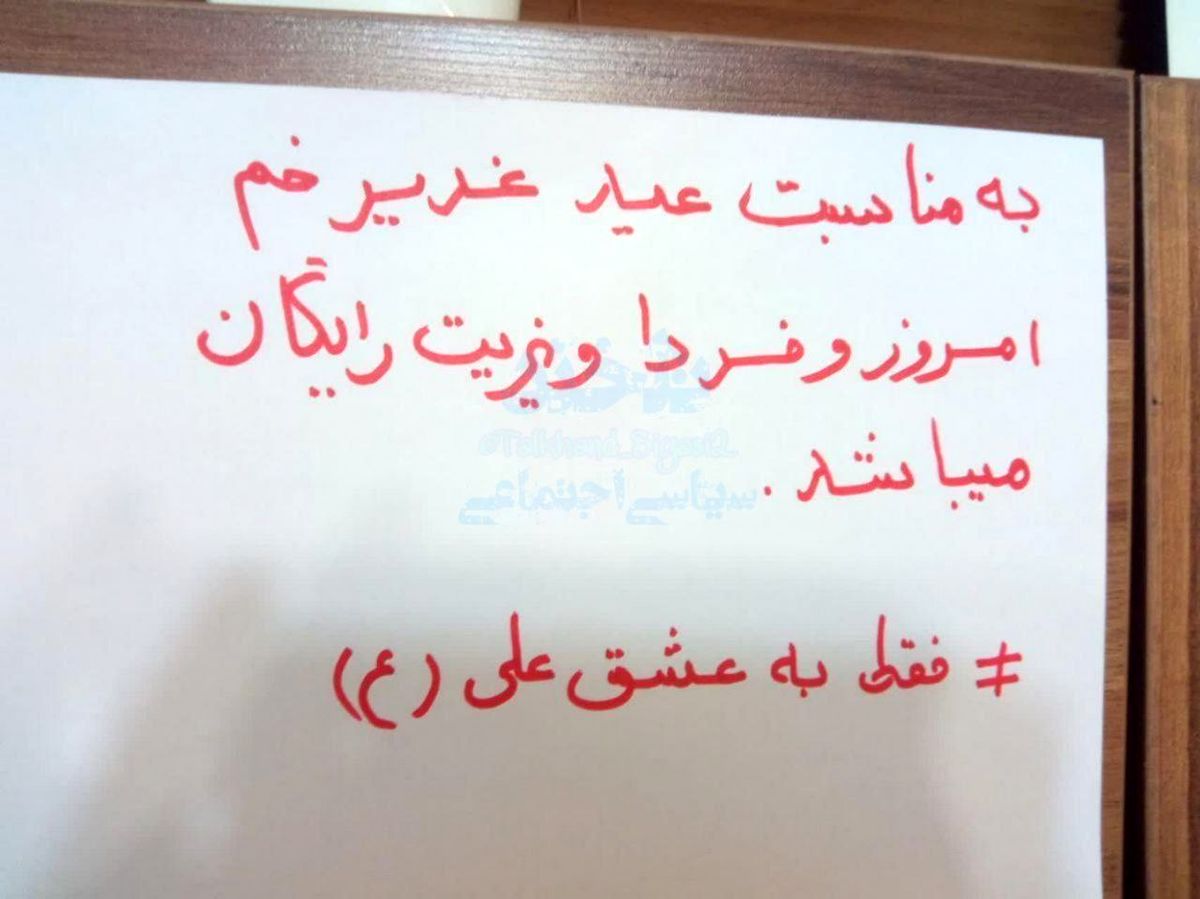 به مناسبت عید غدیر خم
امروز و فردا ویزیت رایگان
میباشد.
@Talkhand_Siyasi2
سیاسی اجتماعی
# فقط به عشق علی (ع)